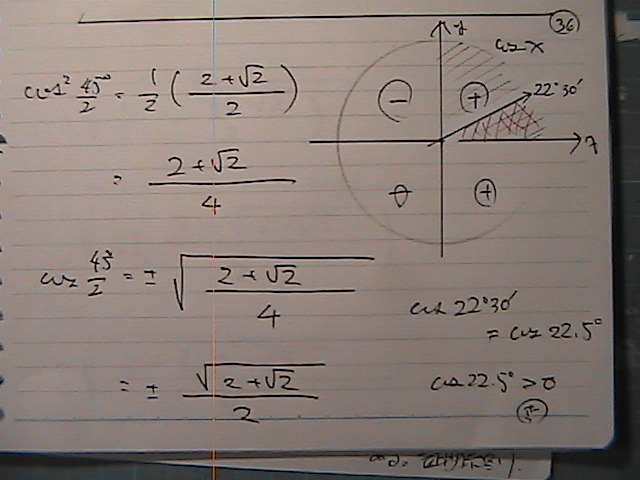 36
cos² 45°/2 = 1/2 ( (2+√2)/2 )
= (2+√2)/4
cos 45°/2 = ± √((2+√2)/4)
= ± √(2+√2)/2
y
cos x
22°30′
x
−
+
+
cos 22°30′
= cos 22.5°
cos 22.5° > 0